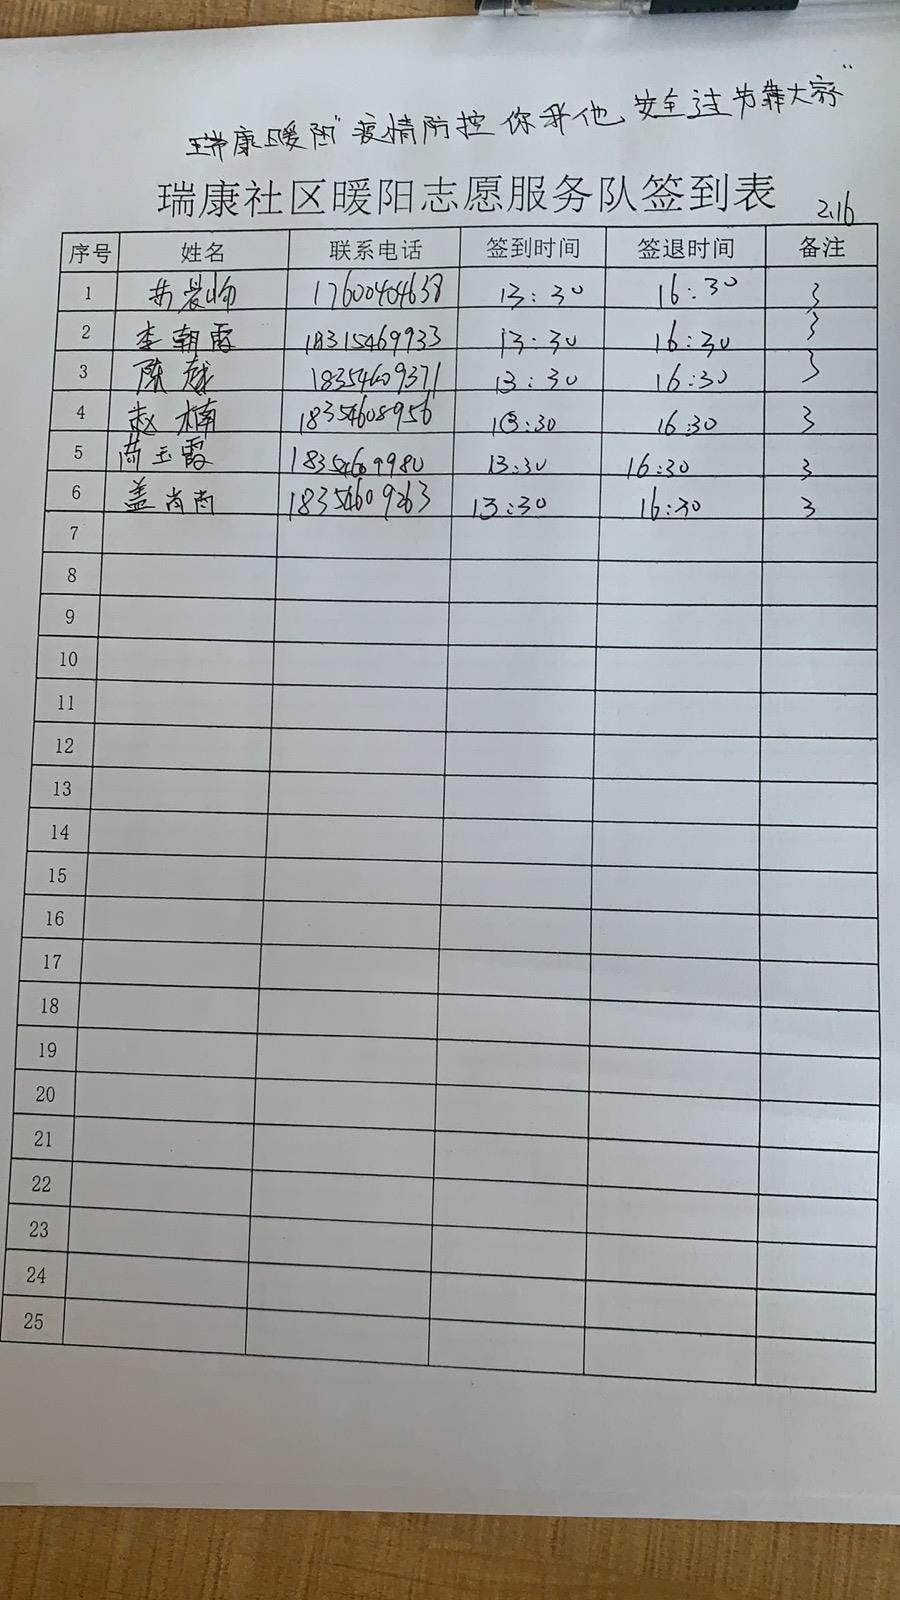 瑞康暖阳"疫情防控 你我他 安全过节靠大家"
瑞康社区暖阳志愿服务队签到表
2.16
序号 姓名 联系电话 签到时间 签退时间 备注
1 17600404638 13:30 16:30 3
2 李朝霞 18315469933 13:30 16:30 3
3 陈越 18354609371 13:30 16:30 3
4 赵楠 18354608956 13:30 16:30 3
5 玉霞 18354609980 13:30 16:30 3
6 盖肖肖 18354609263 13:30 16:30 3
7
8
9
10
11
12
13
14
15
16
17
18
19
20
21
22
23
24
25